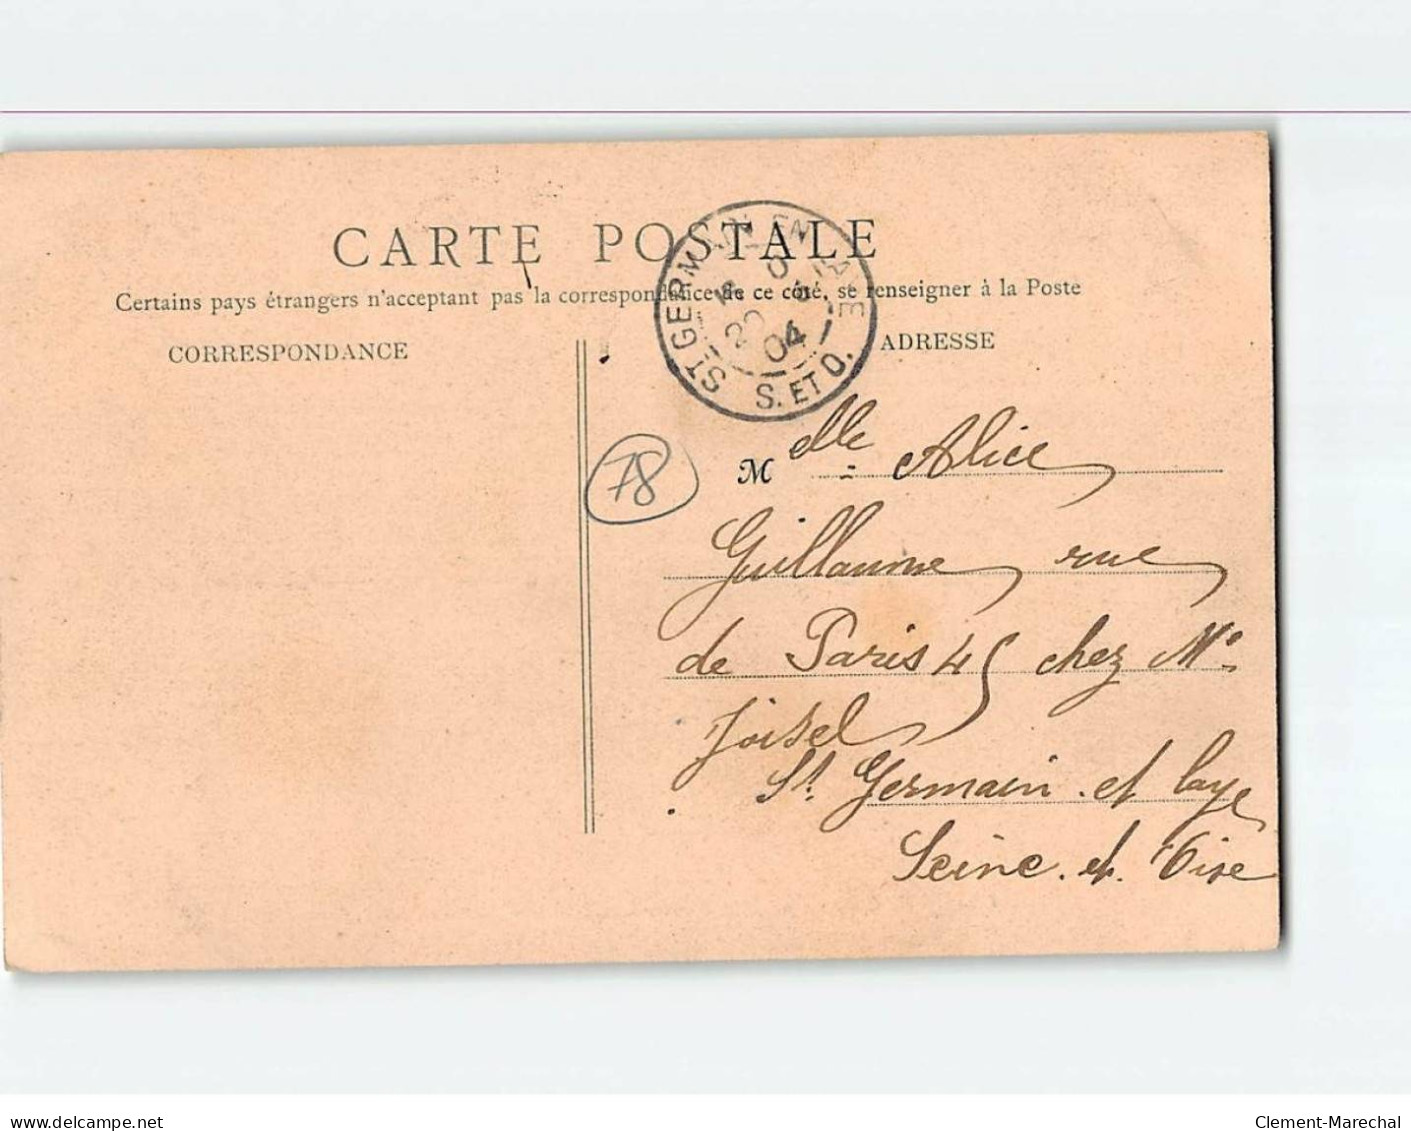 CARTE POSTALE
Certains pays étrangers n'acceptent pas la correspondance de ce côté, se renseigner à la Poste
CORRESPONDANCE
ADRESSE
ST GERMAIN EN LAYE
04
S. ET O.
78
M elle Alice
Guillaume rue
de Paris 45 chez Mr
Joisel
St Germain et laye
Seine et Oise
delcampe.net
Clement-Marechal